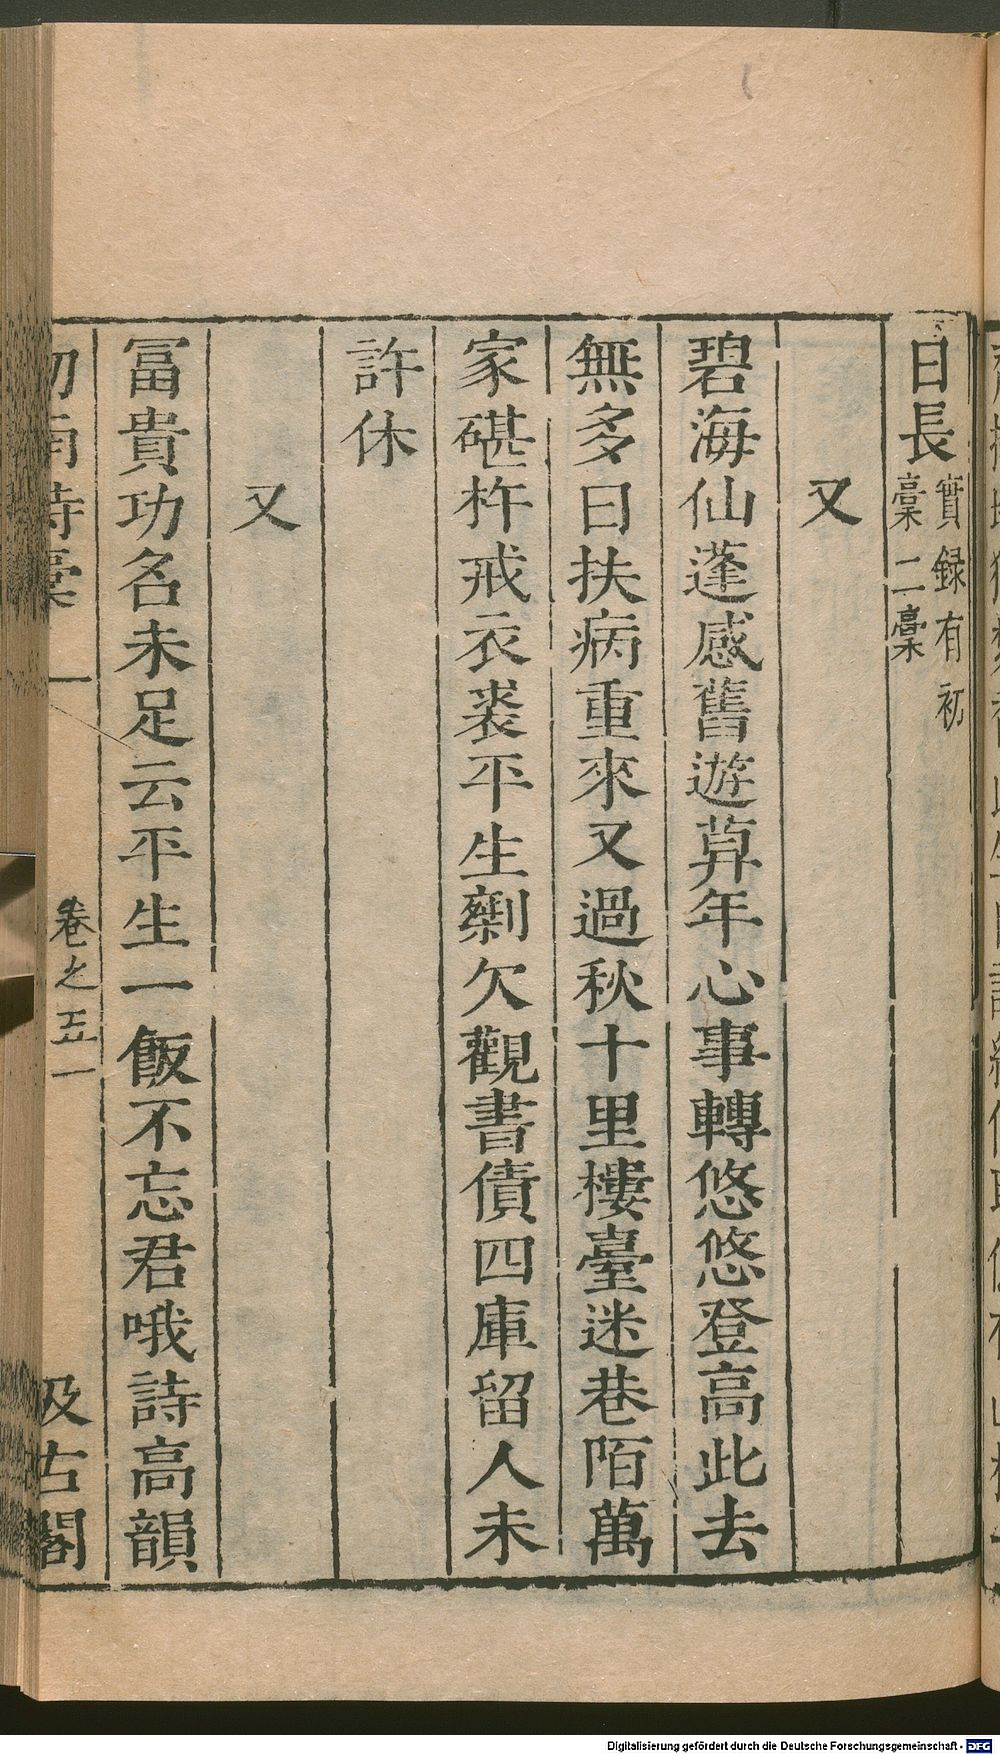 日長實録有初
稾二稾
又
碧海仙蓬感舊遊算年心事轉悠悠登高此去
無多日扶病重來又過秋十里樓臺迷巷陌萬
家碪杵戒衣裘平生剩欠觀書債四庫留人未
許休
又
冨貴功名未足云平生一飯不忘君哦詩高韻
南詩稾一 卷之五一 汲古閣
Digitalisierung gefördert durch die Deutsche Forschungsgemeinschaft - DFG